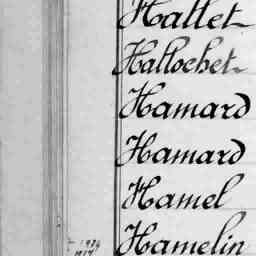 Hallet
Hallochet
Hamard
Hamard
Hamel
Hamelin